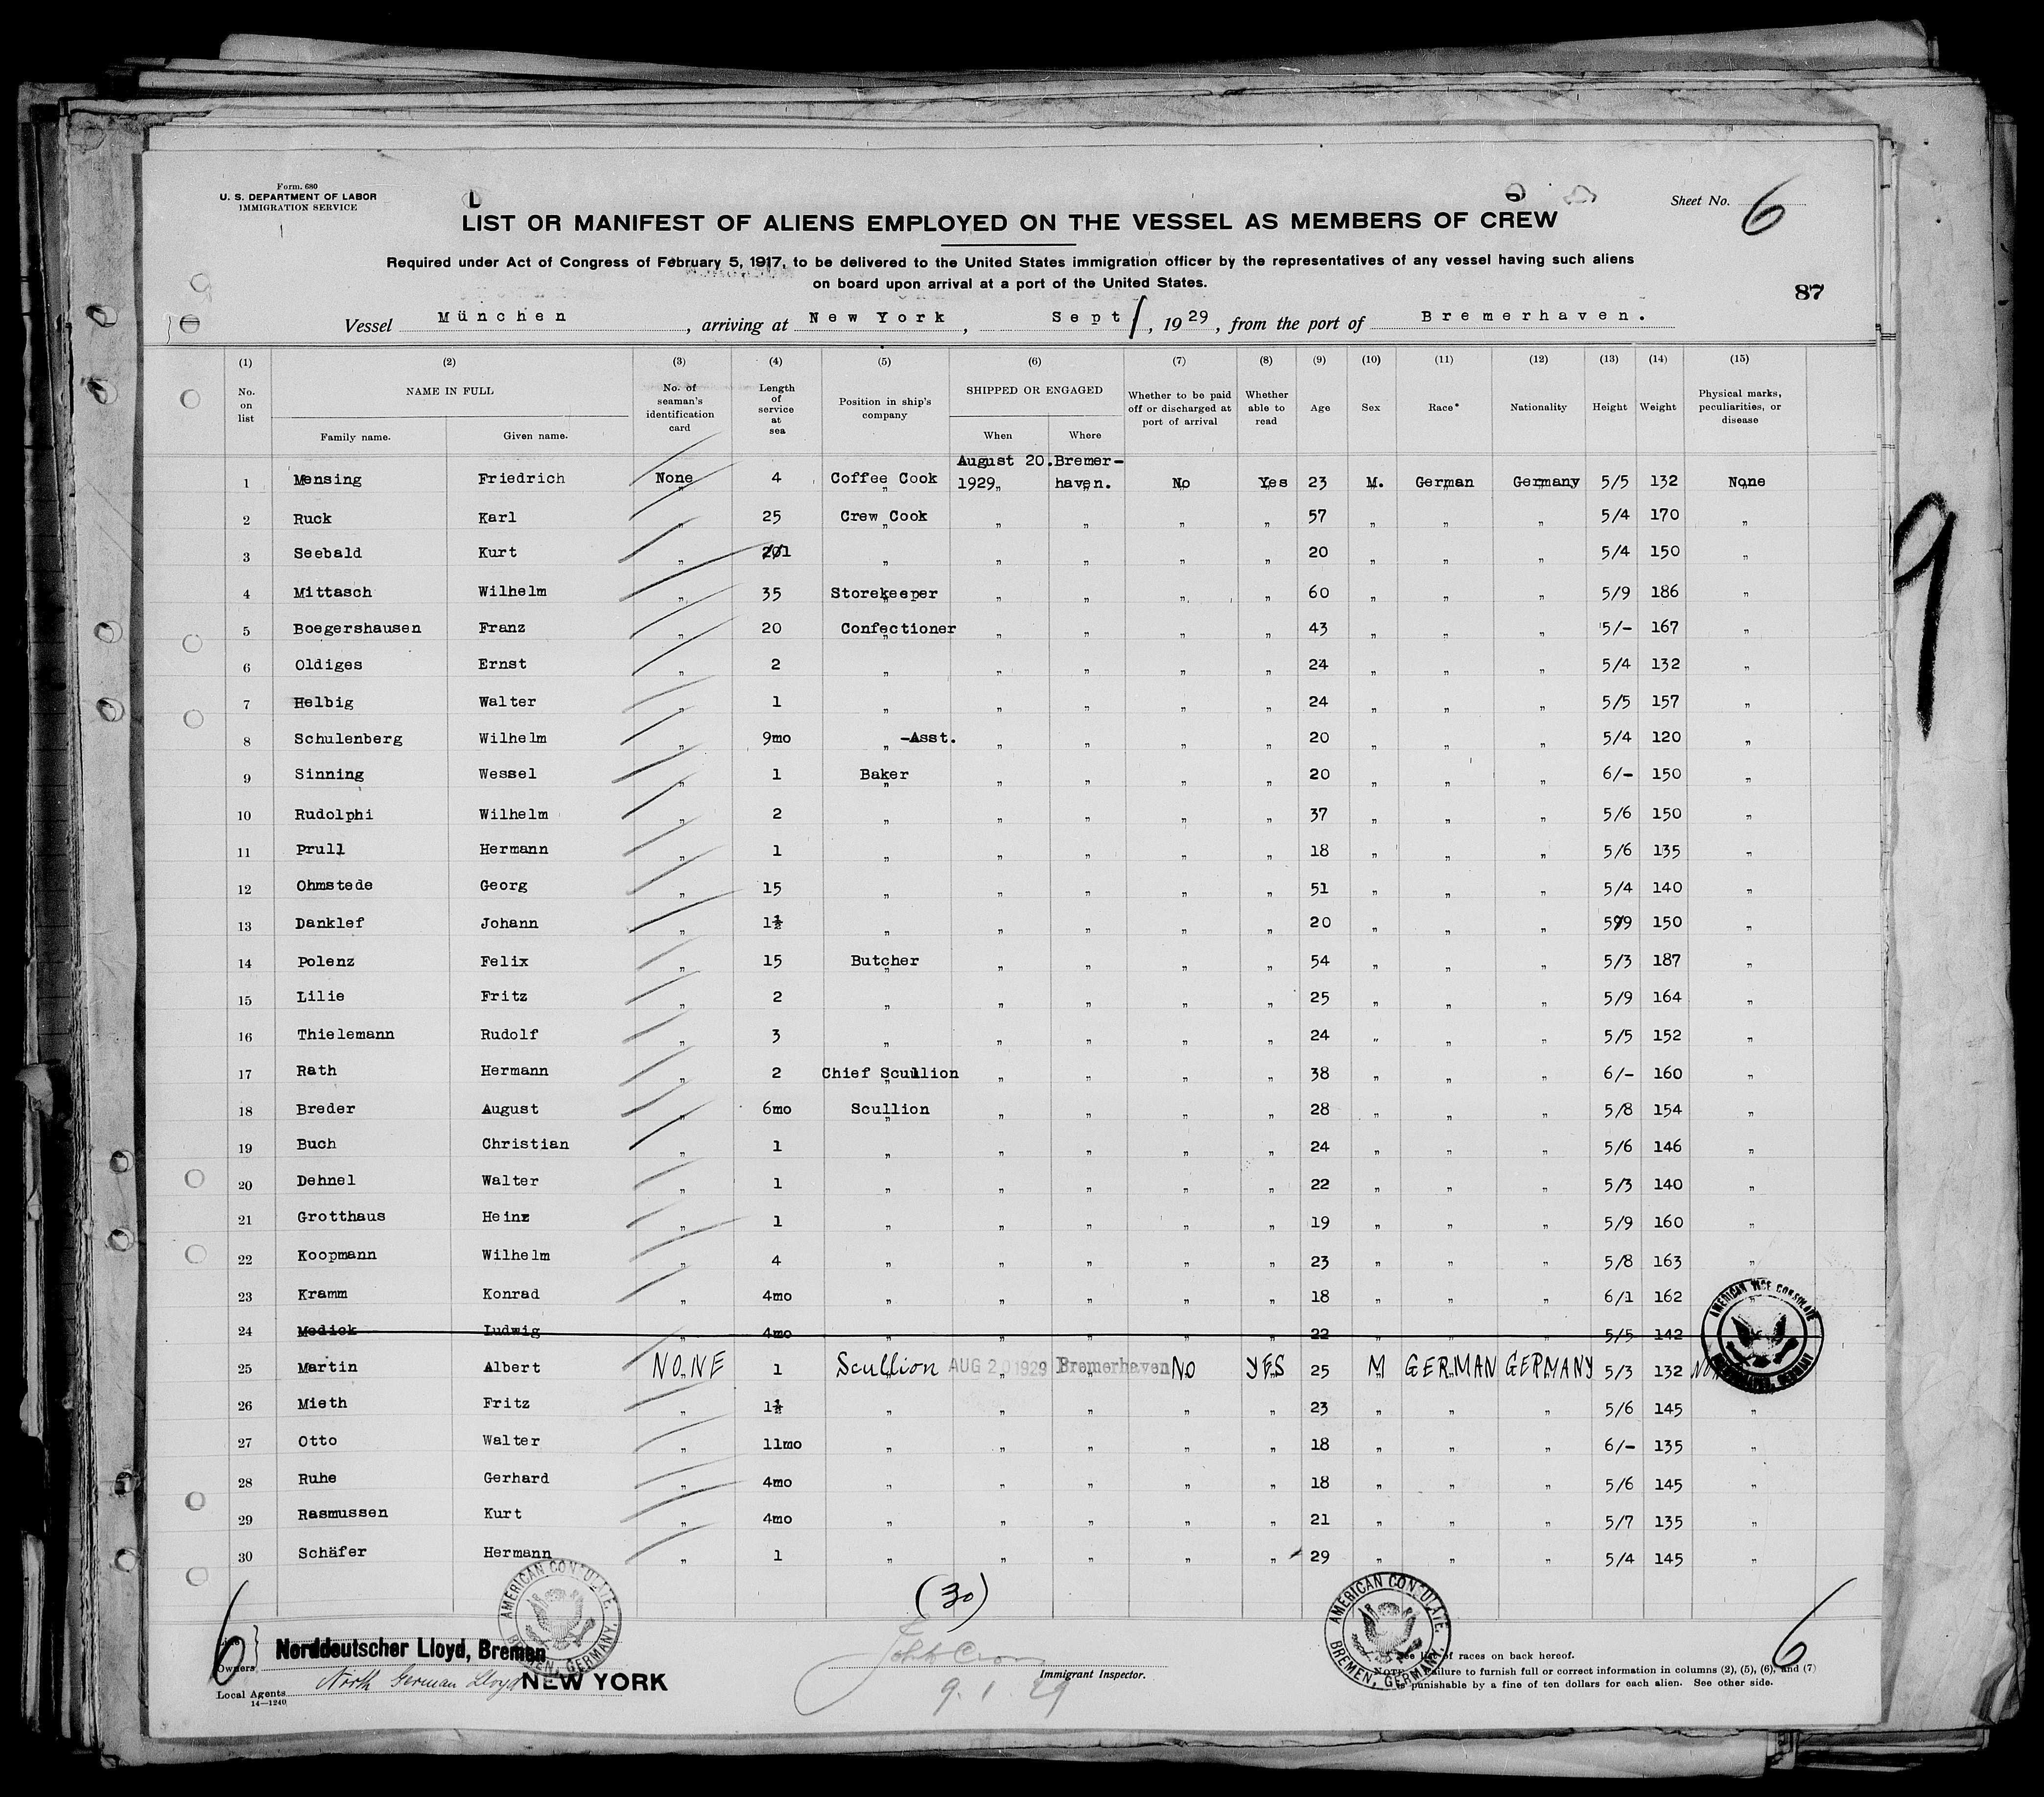 Form. 680
U. S. DEPARTMENT OF LABOR
IMMIGRATION SERVICE
LIST OR MANIFEST OF ALIENS EMPLOYED ON THE VESSEL AS MEMBERS OF CREW
Sheet No. 6
Required under Act of Congress of February 5, 1917, to be delivered to the United States immigration officer by the representatives of any vessel having such aliens
on board upon arrival at a port of the United States.
87
Vessel München, arriving at New York, Sept 1, 1929, from the port of Bremerhaven.
(1) (2) (3) (4) (5) (6) (7) (8) (9) (10) (11) (12) (13) (14) (15)
No. on list NAME IN FULL Family name. Given name. No. of seaman's identification card Length of service at sea Position in ship's company SHIPPED OR ENGAGED When Where Whether to be paid off or discharged at port of arrival Whether able to read Age Sex Race* Nationality Height Weight Physical marks, peculiarities, or disease
August 20. Bremer-
1 Mensing Friedrich None 4 Coffee Cook 1929 haven. No Yes 23 M. German Germany 5/5 132 None
2 Ruck Karl " 25 Crew Cook " " " " 57 " " " 5/4 170 "
3 Seebald Kurt " 1 " " " " " 20 " " " 5/4 150 "
4 Mittasch Wilhelm " 35 Storekeeper " " " " 60 " " " 5/9 186 "
5 Boegershausen Franz " 20 Confectioner " " " " 43 " " " 5/- 167 "
6 Oldiges Ernst " 2 " " " " " 24 " " " 5/4 132 "
7 Helbig Walter " 1 " " " " " 24 " " " 5/5 157 "
8 Schulenberg Wilhelm " 9mo " -Asst. " " " " 20 " " " 5/4 120 "
9 Sinning Wessel " 1 Baker " " " " 20 " " " 6/- 150 "
10 Rudolphi Wilhelm " 2 " " " " " 37 " " " 5/6 150 "
11 Prull Hermann " 1 " " " " " 18 " " " 5/6 135 "
12 Ohmstede Georg " 15 " " " " " 51 " " " 5/4 140 "
13 Danklef Johann " 1½ " " " " " 20 " " " 5/9 150 "
14 Polenz Felix " 15 Butcher " " " " 54 " " " 5/3 187 "
15 Lilie Fritz " 2 " " " " " 25 " " " 5/9 164 "
16 Thielemann Rudolf " 3 " " " " " 24 " " " 5/5 152 "
17 Rath Hermann " 2 Chief Scullion " " " " 38 " " " 6/- 160 "
18 Breder August " 6mo Scullion " " " " 28 " " " 5/8 154 "
19 Buch Christian " 1 " " " " " 24 " " " 5/6 146 "
20 Dehnel Walter " 1 " " " " " 22 " " " 5/3 140 "
21 Grotthaus Heinz " 1 " " " " " 19 " " " 5/9 160 "
22 Koopmann Wilhelm " 4 " " " " " 23 " " " 5/8 163 "
23 Kramm Konrad " 4mo " " " " " 18 " " " 6/1 162 "
24 Medick Ludwig " 4mo " " " " " 22 " " " 5/5 142
25 Martin Albert NONE 1 Scullion AUG 20 1929 Bremerhaven NO YES 25 M GERMAN GERMANY 5/3 132
26 Mieth Fritz " 1½ " " " " " 23 " " " 5/6 145 "
27 Otto Walter " 11mo " " " " " 18 " " " 6/- 135 "
28 Ruhe Gerhard " 4mo " " " " " 18 " " " 5/6 145 "
29 Rasmussen Kurt " 4mo " " " " " 21 " " " 5/7 135 "
30 Schäfer Hermann " 1 " " " " " 29 " " " 5/4 145 "
AMERICAN VICE CONSULATE
(30)
AMERICAN CONSULATE BREMEN, GERMANY.
AMERICAN CONSULATE BREMEN, GERMANY.
6
6
9
Owners Norddeutscher Lloyd, Bremen
Local Agents North German Lloyd NEW YORK
14—1240
Immigrant Inspector.
9. 1. 29
of races on back hereof.
failure to furnish full or correct information in columns (2), (5), (6), and (7)
punishable by a fine of ten dollars for each alien. See other side.